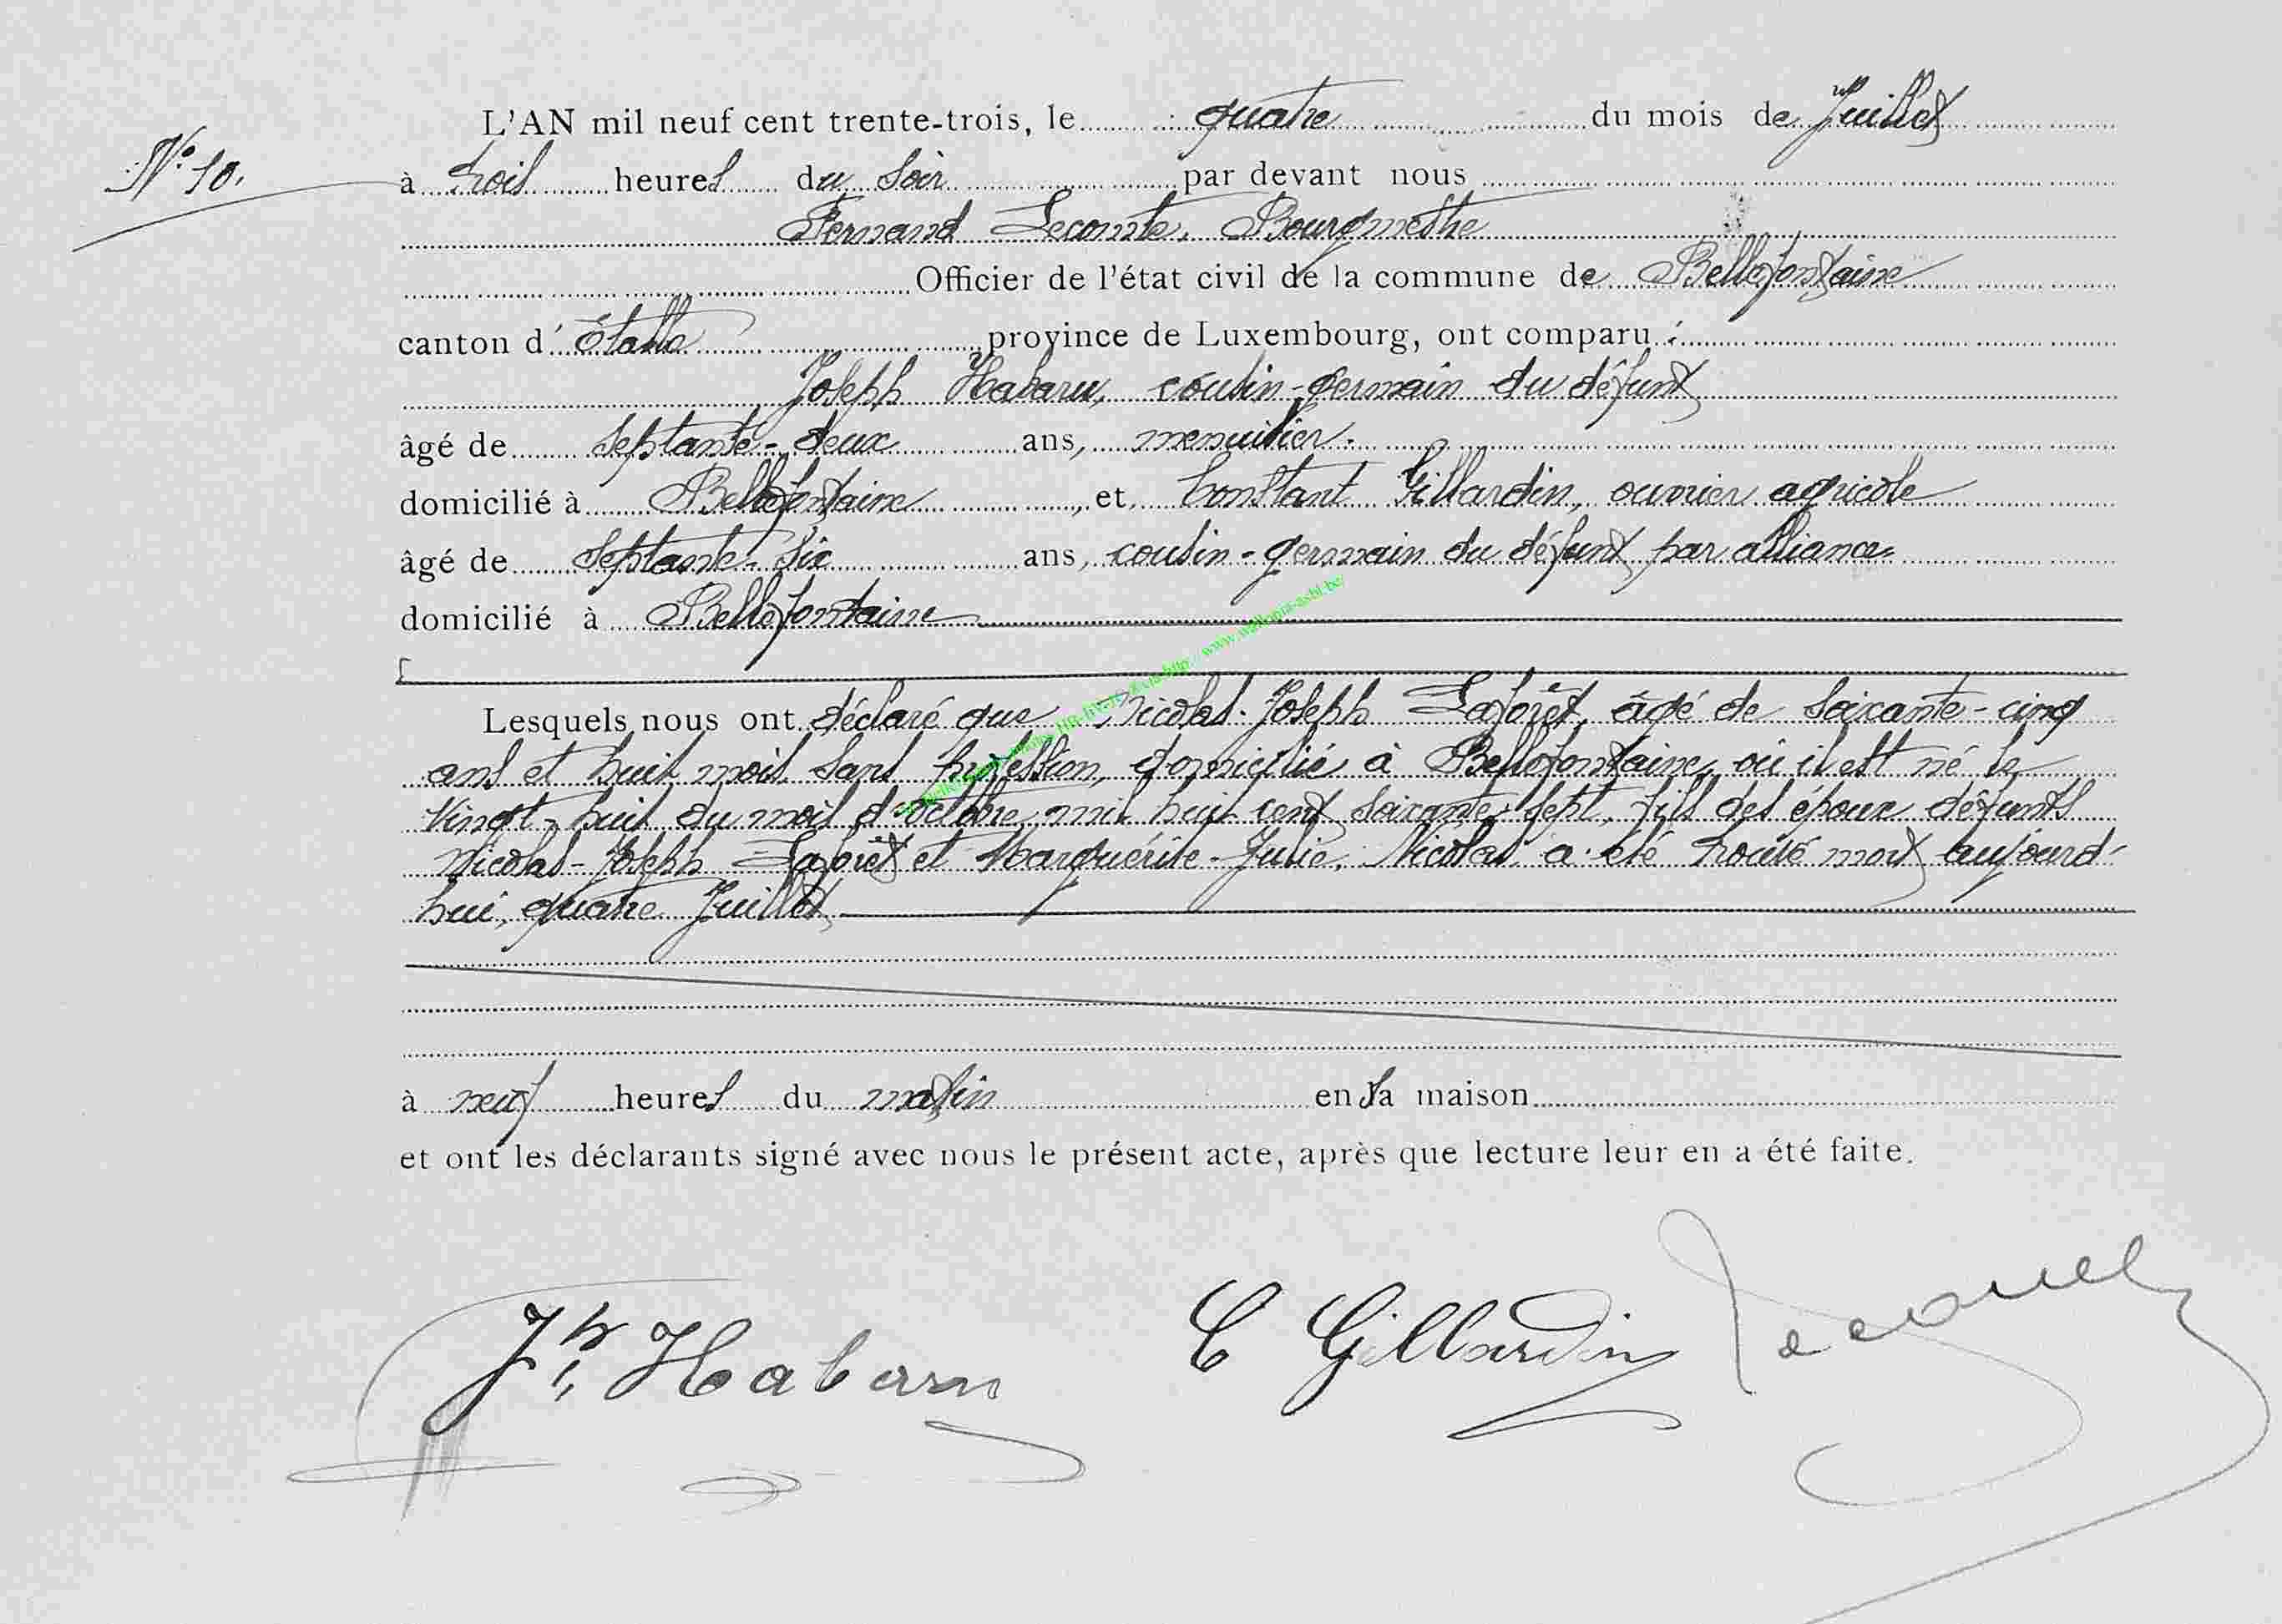 L'AN mil neuf cent trente-trois, le quatre du mois de Juillet
N° 10.
à trois heures du soir par devant nous
Fernand Lecomte, Bourgmestre
Officier de l'état civil de la commune de Bellefontaine
canton d'Étalle province de Luxembourg, ont comparu :
Joseph Habaru, cousin-germain du défunt
âgé de septante-deux ans, menuisier.
domicilié à Bellefontaine, et Constant Gillardin, ouvrier agricole
âgé de septante-six ans, cousin-germain du défunt par alliance.
domicilié à Bellefontaine
Lesquels nous ont déclaré que Nicolas-Joseph Laforêt, âgé de soixante-cinq
ans et huit mois, sans profession, domicilié à Bellefontaine, où il est né le
vingt-huit du mois d'octobre mil huit cent soixante-sept, fils des époux défunts
Nicolas-Joseph Laforêt et Marguérite-Julie, Nicolas a été trouvé mort aujourd'
hui, quatre Juillet
à neuf heures du matin en sa maison
et ont les déclarants signé avec nous le présent acte, après que lecture leur en a été faite.
Jh Habaru C Gillardin
http://www.wallonia-asbl.be/